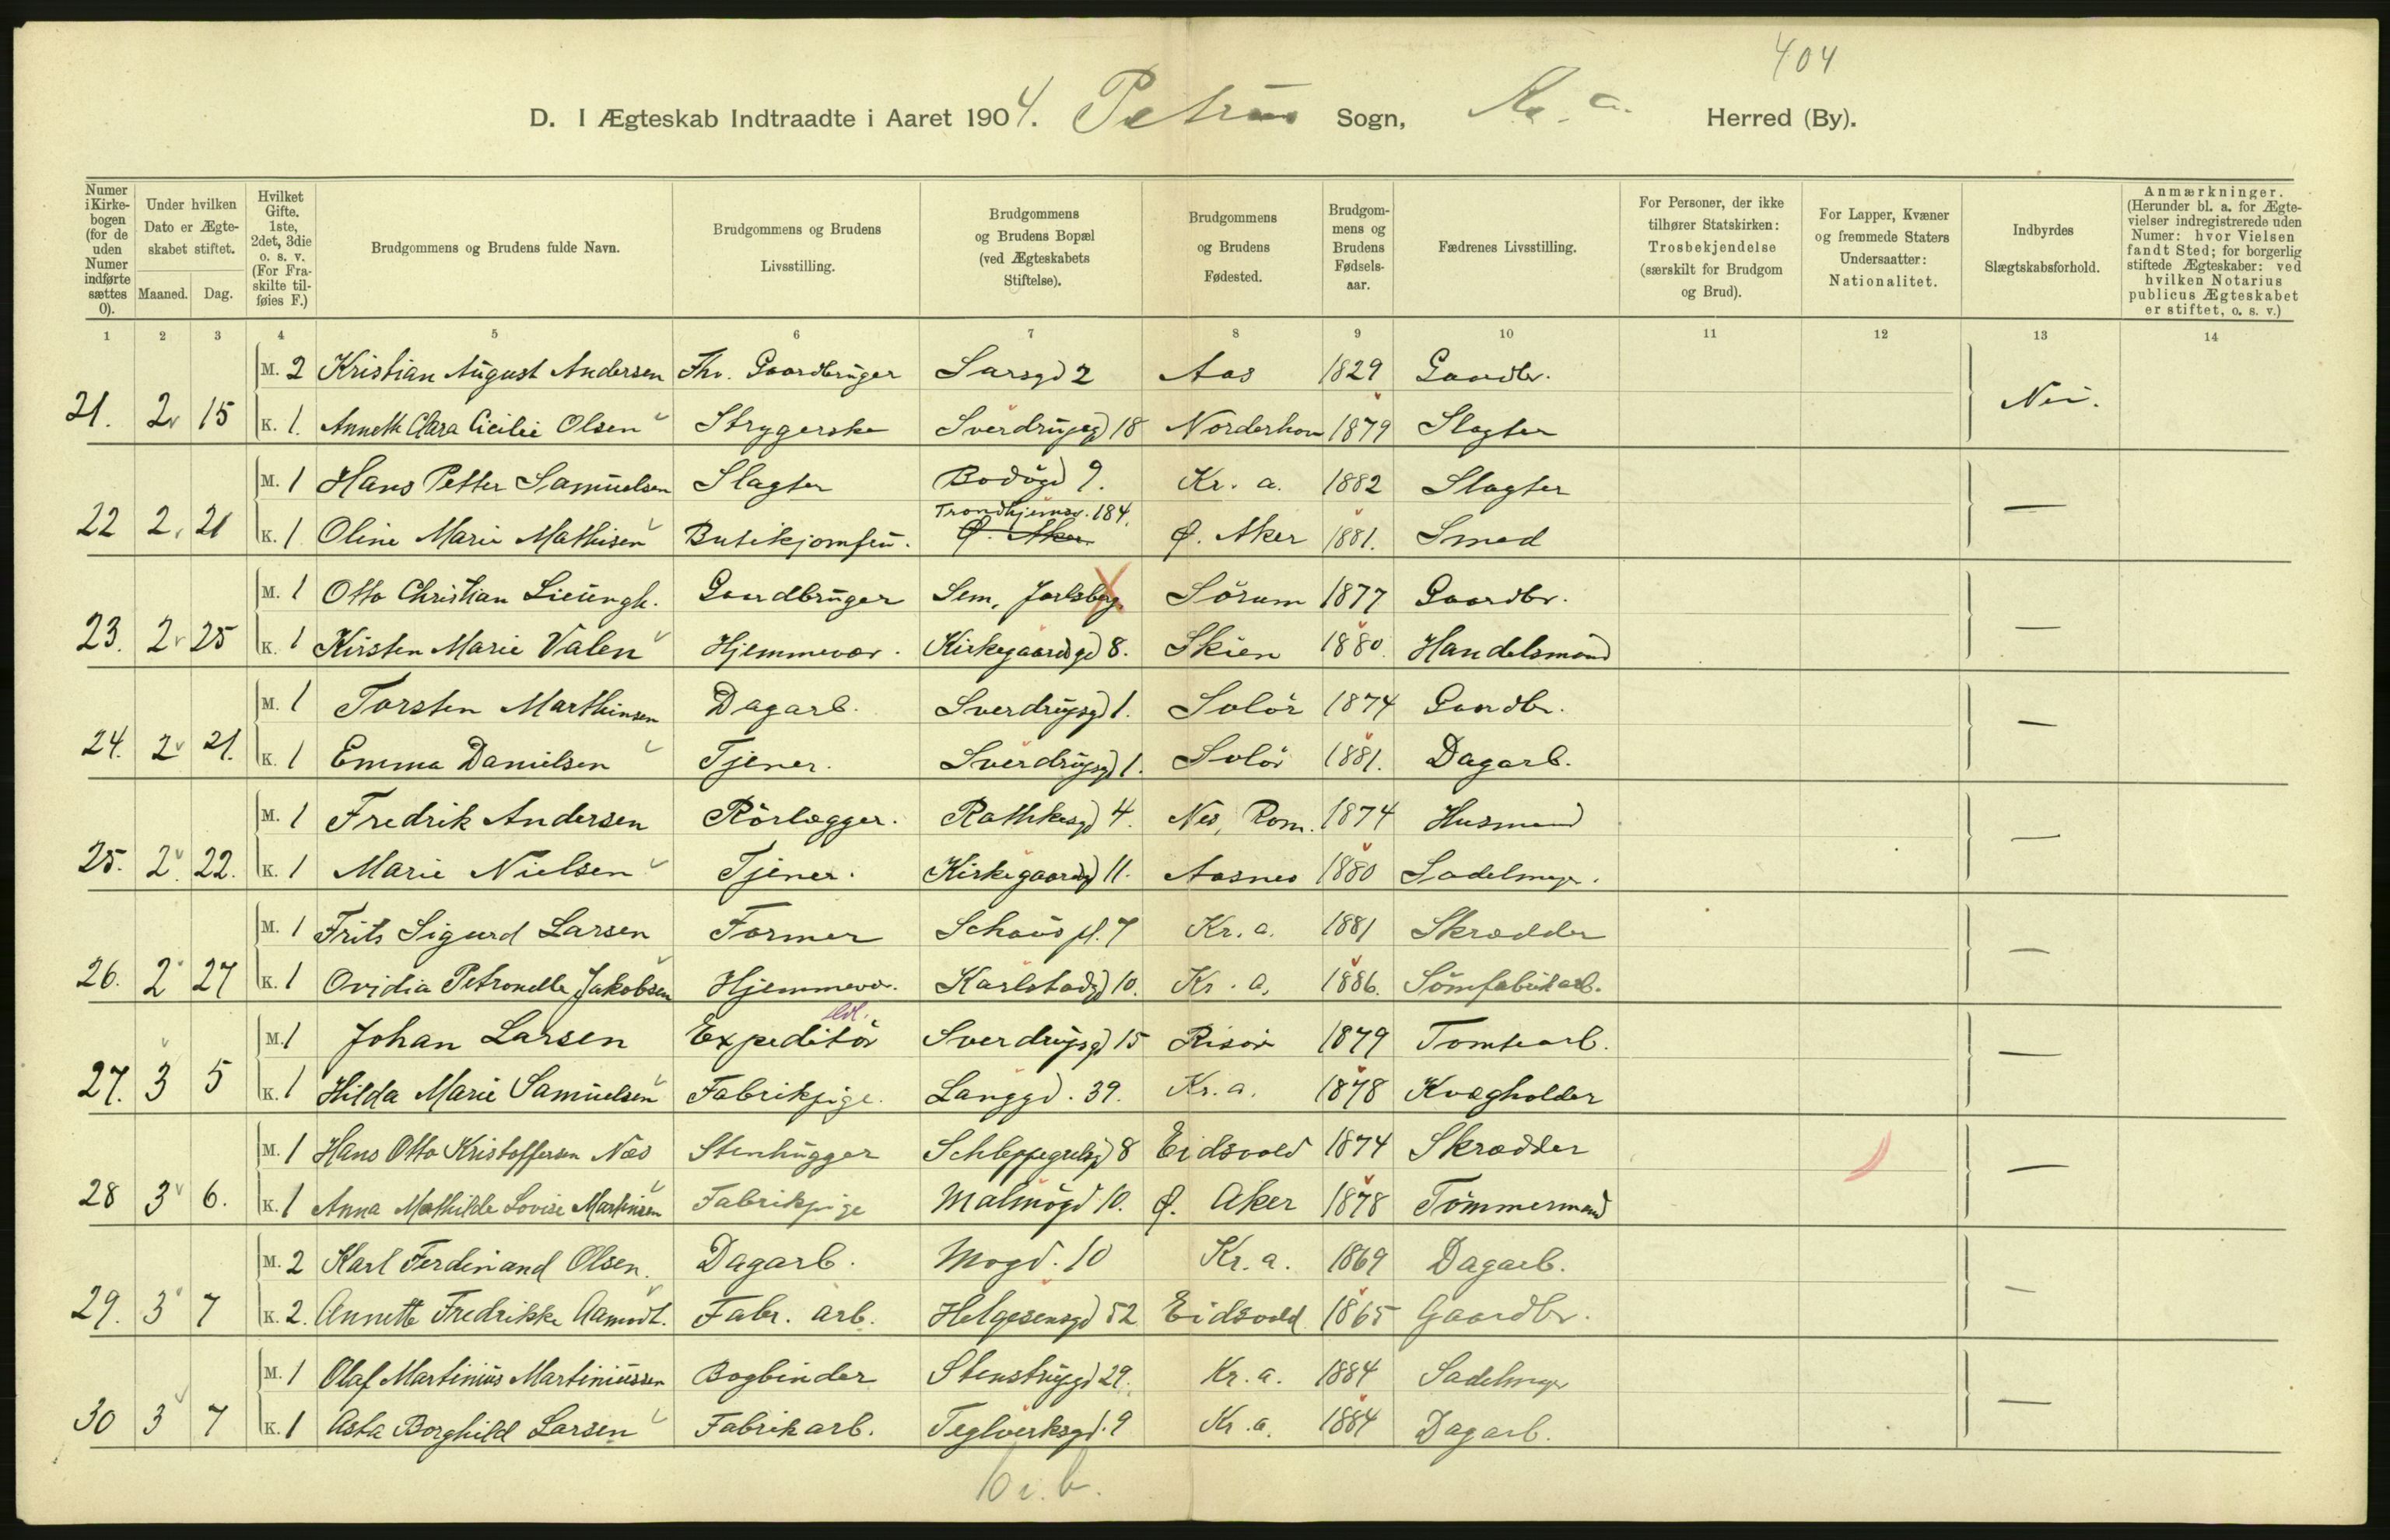 404
D. I Ægteskab Indtraadte i Aaret 1904. Petrus Sogn, Kr. a. Herred (By).
Numer i Kirkebogen (for de uden Numer indførte sættes 0).
Under hvilken Dato er Ægteskabet stiftet.
Maaned. Dag.
Hvilket Gifte. 1ste, 2det, 3die o. s. v. (For Fraskilte tilføies F.)
Brudgommens og Brudens fulde Navn.
Brudgommens og Brudens Livsstilling.
Brudgommens og Brudens Bopæl (ved Ægteskabets Stiftelse).
Brudgommens og Brudens Fødested.
Brudgommens og Brudens Fødselsaar.
Fædrenes Livsstilling.
For Personer, der ikke tilhører Statskirken: Trosbekjendelse (særskilt for Brudgom og Brud).
For Lapper, Kvæner og fremmede Staters Undersaatter: Nationalitet.
Indbyrdes Slægtskabsforhold.
Anmærkninger. (Herunder bl. a. for Ægtevielser indregistrerede uden Numer: hvor Vielsen fandt Sted; for borgerlig stiftede Ægteskaber: ved hvilken Notarius publicus Ægteskabet er stiftet, o. s. v.)
1 2 3 4 5 6 7 8 9 10 11 12 13 14
M. 2 Kristian August Andersen Fhv. Gaardbruger Sarsgd 2 Aas 1829 Gaardbr.
21. 2 15 K. 1. Anneth Clara Cicilie Olsen Strygerske Sverdrupsgd 18 Norderhov 1879 Slagter Nei.
M. 1 Hans Petter Samuelsen Slagter Bodøgd 9. Kr. a. 1882 Slagter
Trondhjemsv. 184.
22 2. 21 K. 1 Oline Marie Mathisen Butikjomfru. Ø. Aker Ø. Aker 1881. Smed —
M. 1 Otto Christian Lieungh. Gaardbruger Sem, Jarlsberg Sörum 1877 Gaardbr.
23. 2 25 K. 1 Kirsten Marie Valen Hjemmevær. Kirkegaardsgd 8. Skien 1880. Handelsmand —
M. 1 Torsten Marthinsen Dagarb. Sverdrupsgd 1. Solör 1874 Gaardbr.
24. 2 21. K. 1 Emma Danielsen Tjener. Sverdrupsgd 1. Solör 1881. Dagarb. —
M. 1 Fredrik Andersen Rörlægger. Rathkesgd 4. Nes, Rom. 1874 Husmand
25. 2. 22. K. 1 Marie Nielsen Tjener. Kirkegaardsgd 11. Aasnes 1880 Sadelmager. —
M. 1 Frits Sigurd Larsen Former Schous pl. 7 Kr. a. 1881 Skrædder
26. 2 27 K. 1 Ovidia Petronelle Jakobsen Hjemmevær. Karlstadgd 10. Kr. a. 1886. Sömfabrikarb. —
M. 1 Johan Larsen Expeditör Sverdrupsgd 15 Risör 1879 Tomtearb.
27. 3 5 K. 1 Hilda Marie Samuelsen Fabrikpige. Langgd. 39. Kr. a. 1878 Kvægholder —
M. 1 Hans Otto Kristoffersen Næs Stenhugger Schleppegrelsgd 8 Eidsvold 1874 Skrædder
28 3 6. K. 1 Anna Mathilde Lovise Martinsen Fabrikpige Malmögd 10. Ø. Aker 1878 Tömmermand —
M. 2 Karl Ferdinand Olsen. Dagarb. Mogd. 10 Kr. a. 1869 Dagarb.
29. 3 7 K. 2. Annette Fredrikke Aamodt. Fabr. arb. Helgesensgd 52 Eidsvold 1865 Gaardbr. —
M. 1 Olaf Martinius Martiniussen Bogbinder Stenstrupgd 29. Kr. a. 1884 Sadelmager
30 3 7 K. 1 Asta Borghild Larsen Fabrikarb. Teglverksgd. 9 Kr. a. 1884 Dagarb. —